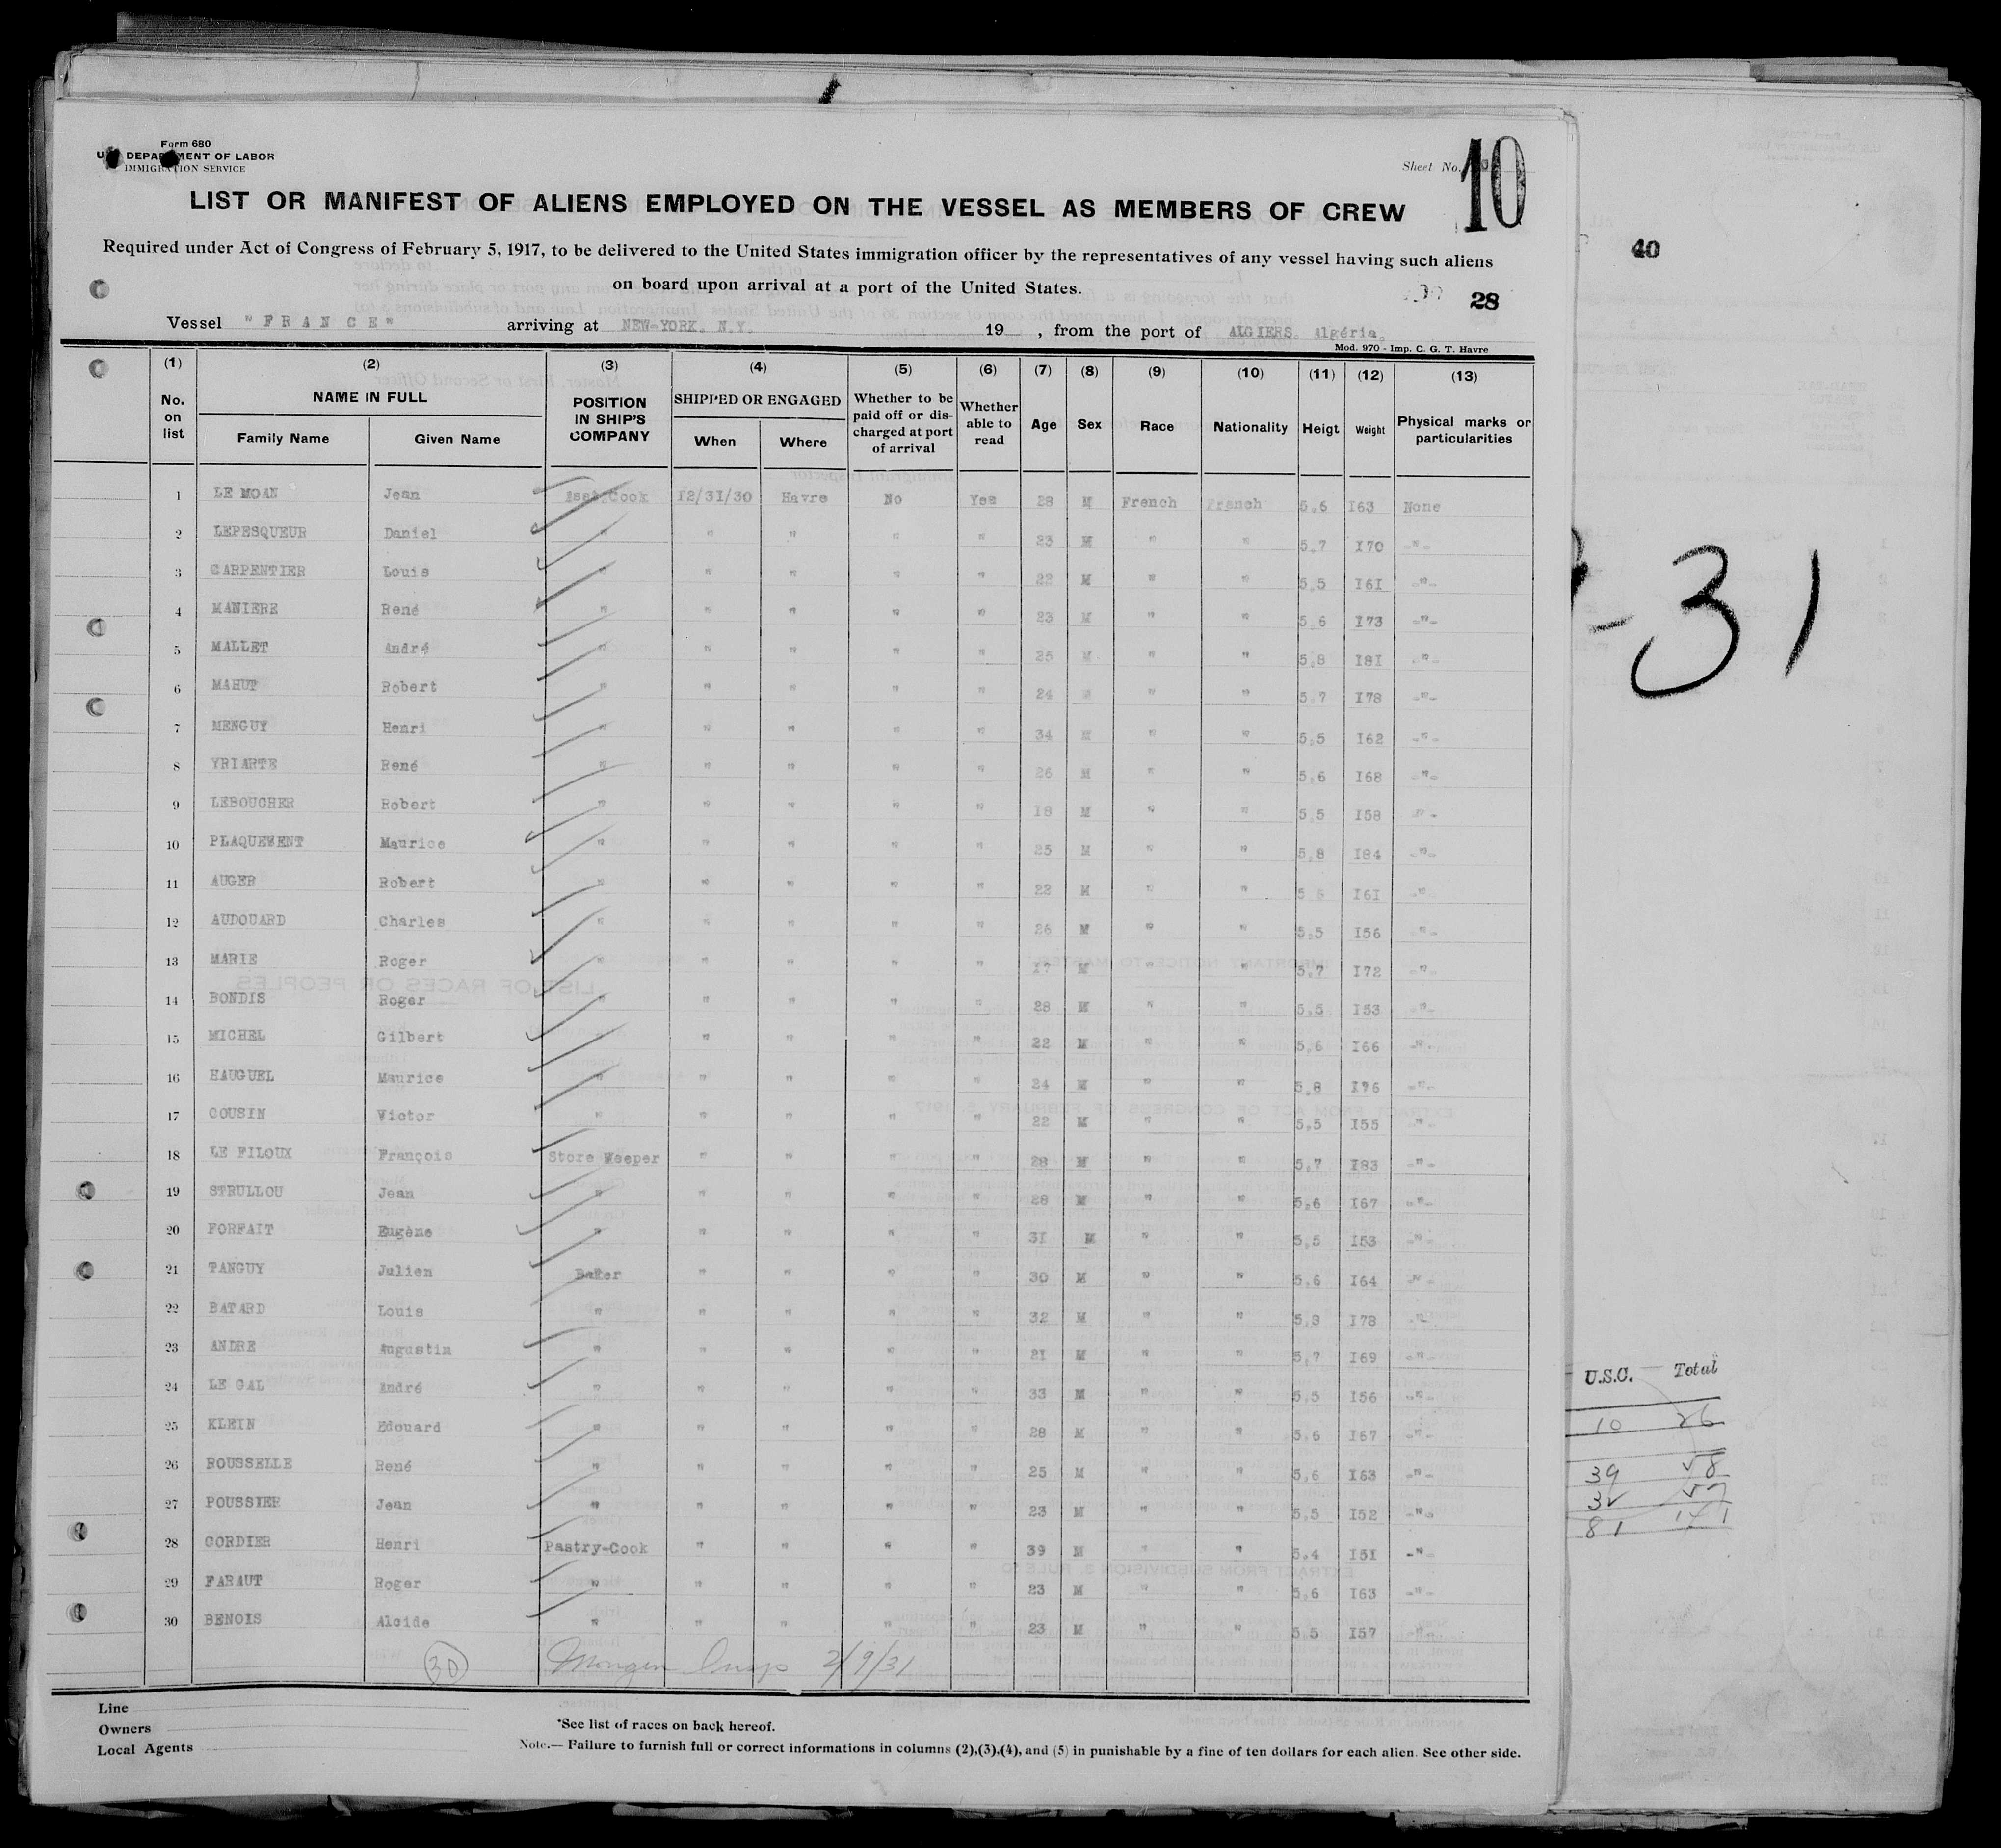 Form 680
U.S. DEPARTMENT OF LABOR
IMMIGRATION SERVICE
Sheet No. 10
LIST OR MANIFEST OF ALIENS EMPLOYED ON THE VESSEL AS MEMBERS OF CREW
Required under Act of Congress of February 5, 1917, to be delivered to the United States immigration officer by the representatives of any vessel having such aliens
on board upon arrival at a port of the United States.
28
40
Vessel "FRANCE" arriving at NEW-YORK. N.Y. 19 , from the port of ALGIERS. Algéria.
Mod. 970 - Imp. C. G. T. Havre
(1) (2) (3) (4) (5) (6) (7) (8) (9) (10) (11) (12) (13)
No. on list NAME IN FULL Family Name Given Name POSITION IN SHIP'S COMPANY SHIPPED OR ENGAGED When Where Whether to be paid off or discharged at port of arrival Whether able to read Age Sex Race Nationality Heigt Weight Physical marks or particularities
1 LE MOAN Jean Asst Cook 12/31/30 Havre No Yes 28 M French French 5.6 I63 None
2 LEPESQUEUR Daniel " " " " " 23 M " " 5.7 I70 -"-
3 CARPENTIER Louis " " " " " 22 M " " 5.5 I6I -"-
4 MANIERE René " " " " " 23 M " " 5.6 I73 -"-
5 MALLET André " " " " " 25 M " " 5.8 I8I -"-
6 MAHUT Robert " " " " " 24 M " " 5.7 I78 -"-
7 MENGUY Henri " " " " " 34 M " " 5.5 I62 -"-
8 YRIARTE René " " " " " 26 M " " 5.6 I68 -"-
9 LEBOUCHER Robert " " " " " I8 M " " 5.5 I58 -"-
10 PLAQUEVENT Maurice " " " " " 25 M " " 5.8 I84 -"-
11 AUGER Robert " " " " " 22 M " " I6I -"-
12 AUDOUARD Charles " " " " " 26 M " " 5.5 I56 -"-
13 MARIE Roger " " " " " I7 M " " 5.7 I72 -"-
14 BONDIS Roger " " " " " 28 M " " 5.5 I53 -"-
15 MICHEL Gilbert " " " " " 22 M " " 5.6 I66 -"-
16 HAUGUEL Maurice " " " " " 24 M " " 5.8 I76 -"-
17 COUSIN Victor " " " " " 22 M " " 5.5 I55 -"-
18 LE FILOUX François Store Keeper " " " " 28 M " " 5.7 I83 -"-
19 STRULLOU Jean " " " " " 28 M " " 5.6 I67 -"-
20 FORFAIT Eugène " " " " " 3I M " " 5.5 I53 -"-
21 TANGUY Julien Baker " " " " 30 M " " 5.6 I64 -"-
22 BATARD Louis " " " " " 32 M " " 5.8 I78 -"-
23 ANDRE Augustin " " " " " 2I M " " 5.7 I69 -"-
24 LE GAL André " " " " " 33 M " " 5.5 I56 -"-
25 KLEIN Edouard " " " " " 28 M " " 5.6 I67 -"-
26 ROUSSELLE René " " " " " 25 M " " 5.6 I63 -"-
27 POUSSIER Jean " " " " " 23 M " " 5.5 I52 -"-
28 CORDIER Henri Pastry-Cook " " " " 39 M " " 5.4 I5I -"-
29 FARAUT Roger " " " " " 23 M " " 5.6 I63 -"-
30 BENOIS Alcide " " " " " 23 M " " 5.5 I57 -"-
30 Insp 2/9/31
Line
Owners
Local Agents
*See list of races on back hereof.
Note.— Failure to furnish full or correct informations in columns (2),(3),(4), and (5) in punishable by a fine of ten dollars for each alien. See other side.
-31
U.S.C. Total
10 26
39 58
32 57
81 141